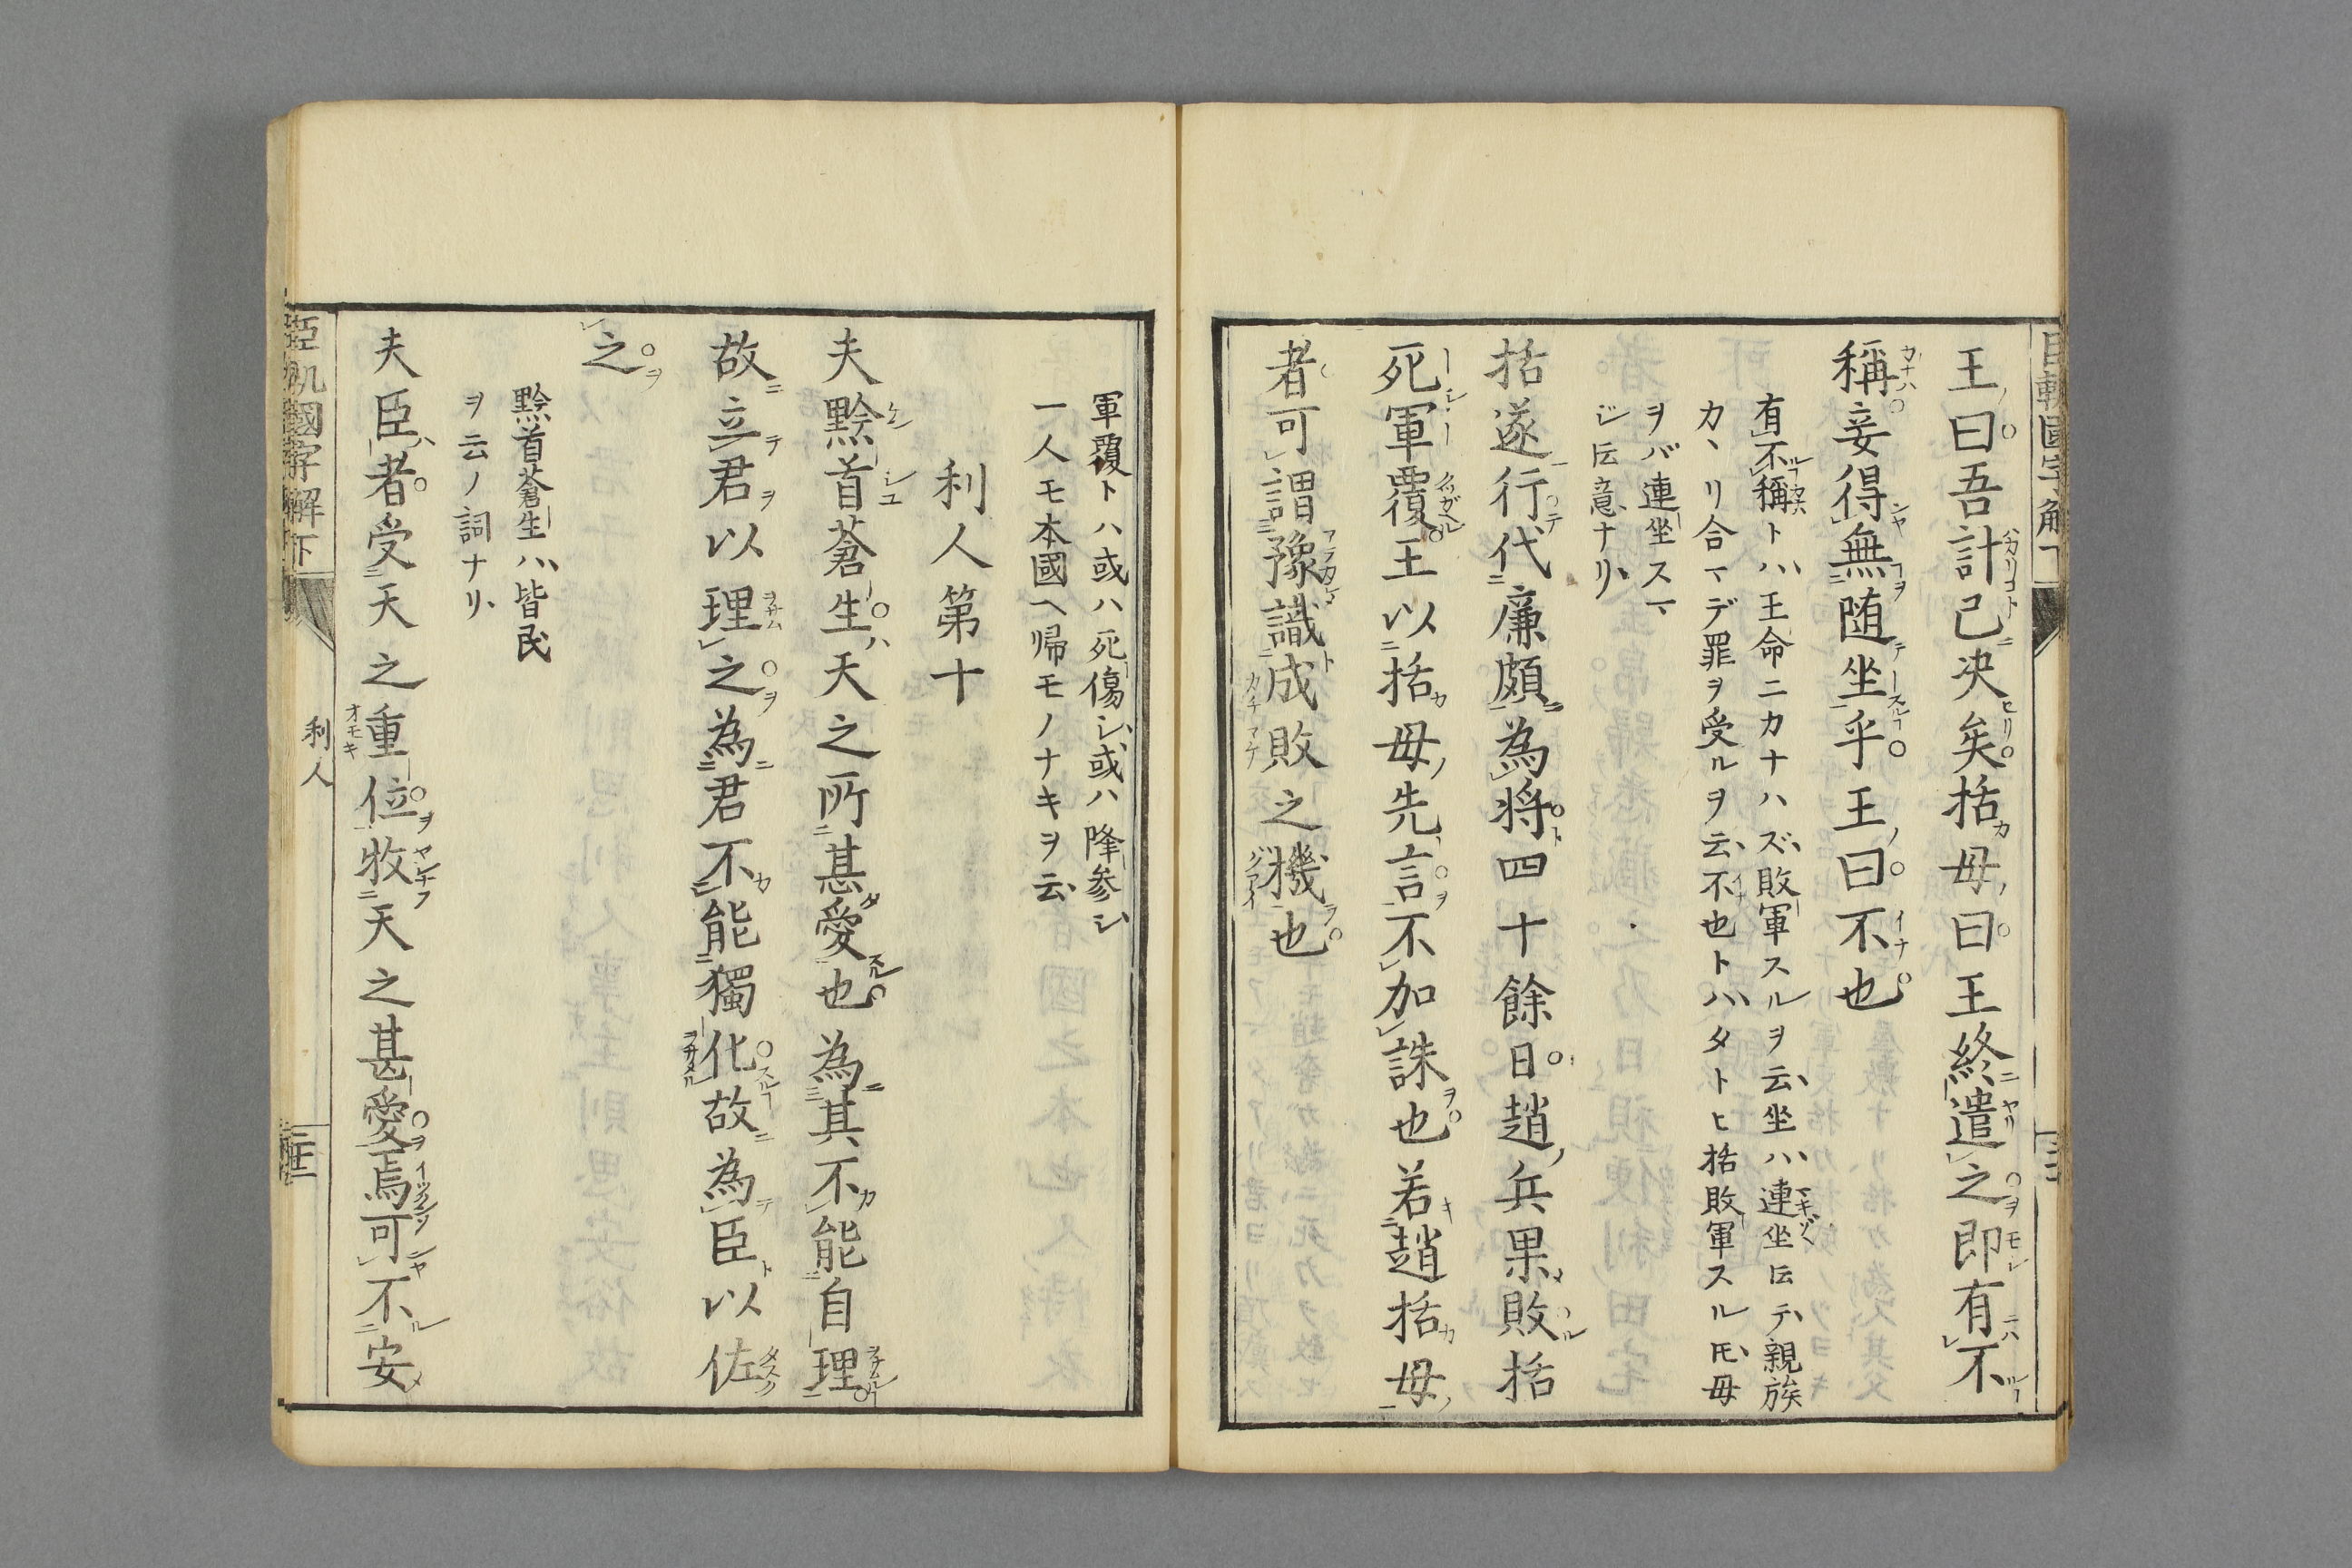 王曰吾計已决矣括母曰王終遣之即有不
稱妾得無随坐乎王曰不也
有不稱トハ、王命ニカナハズ、敗軍スルヲ云、坐ハ、連坐𪜈テ、親族
カヽリ合ヿデ罪ヲ受ルヲ云、不也トハ、タトヒ括敗軍スル𪜈、母
ヲバ連坐スヿ
ジト云意ナリ、
括遂行代廉頗為将四十餘日趙兵果敗括
死軍覆王以括母先言不加誅也若趙括母
者可謂豫識成敗之機也
軍覆トハ或ハ死傷シ、或ハ降参シ
一人モ本國ヘ帰モノナキヲ云、
利人第十
夫黔首蒼生天之所甚愛也為其不能自理
故立君以理之為君不能獨化故為臣以佐
之
黔首蒼生ハ、皆民
ヲ云ノ詞ナリ、
夫臣者受天之重位牧天之甚愛焉可不安
臣軌國字解下
利人